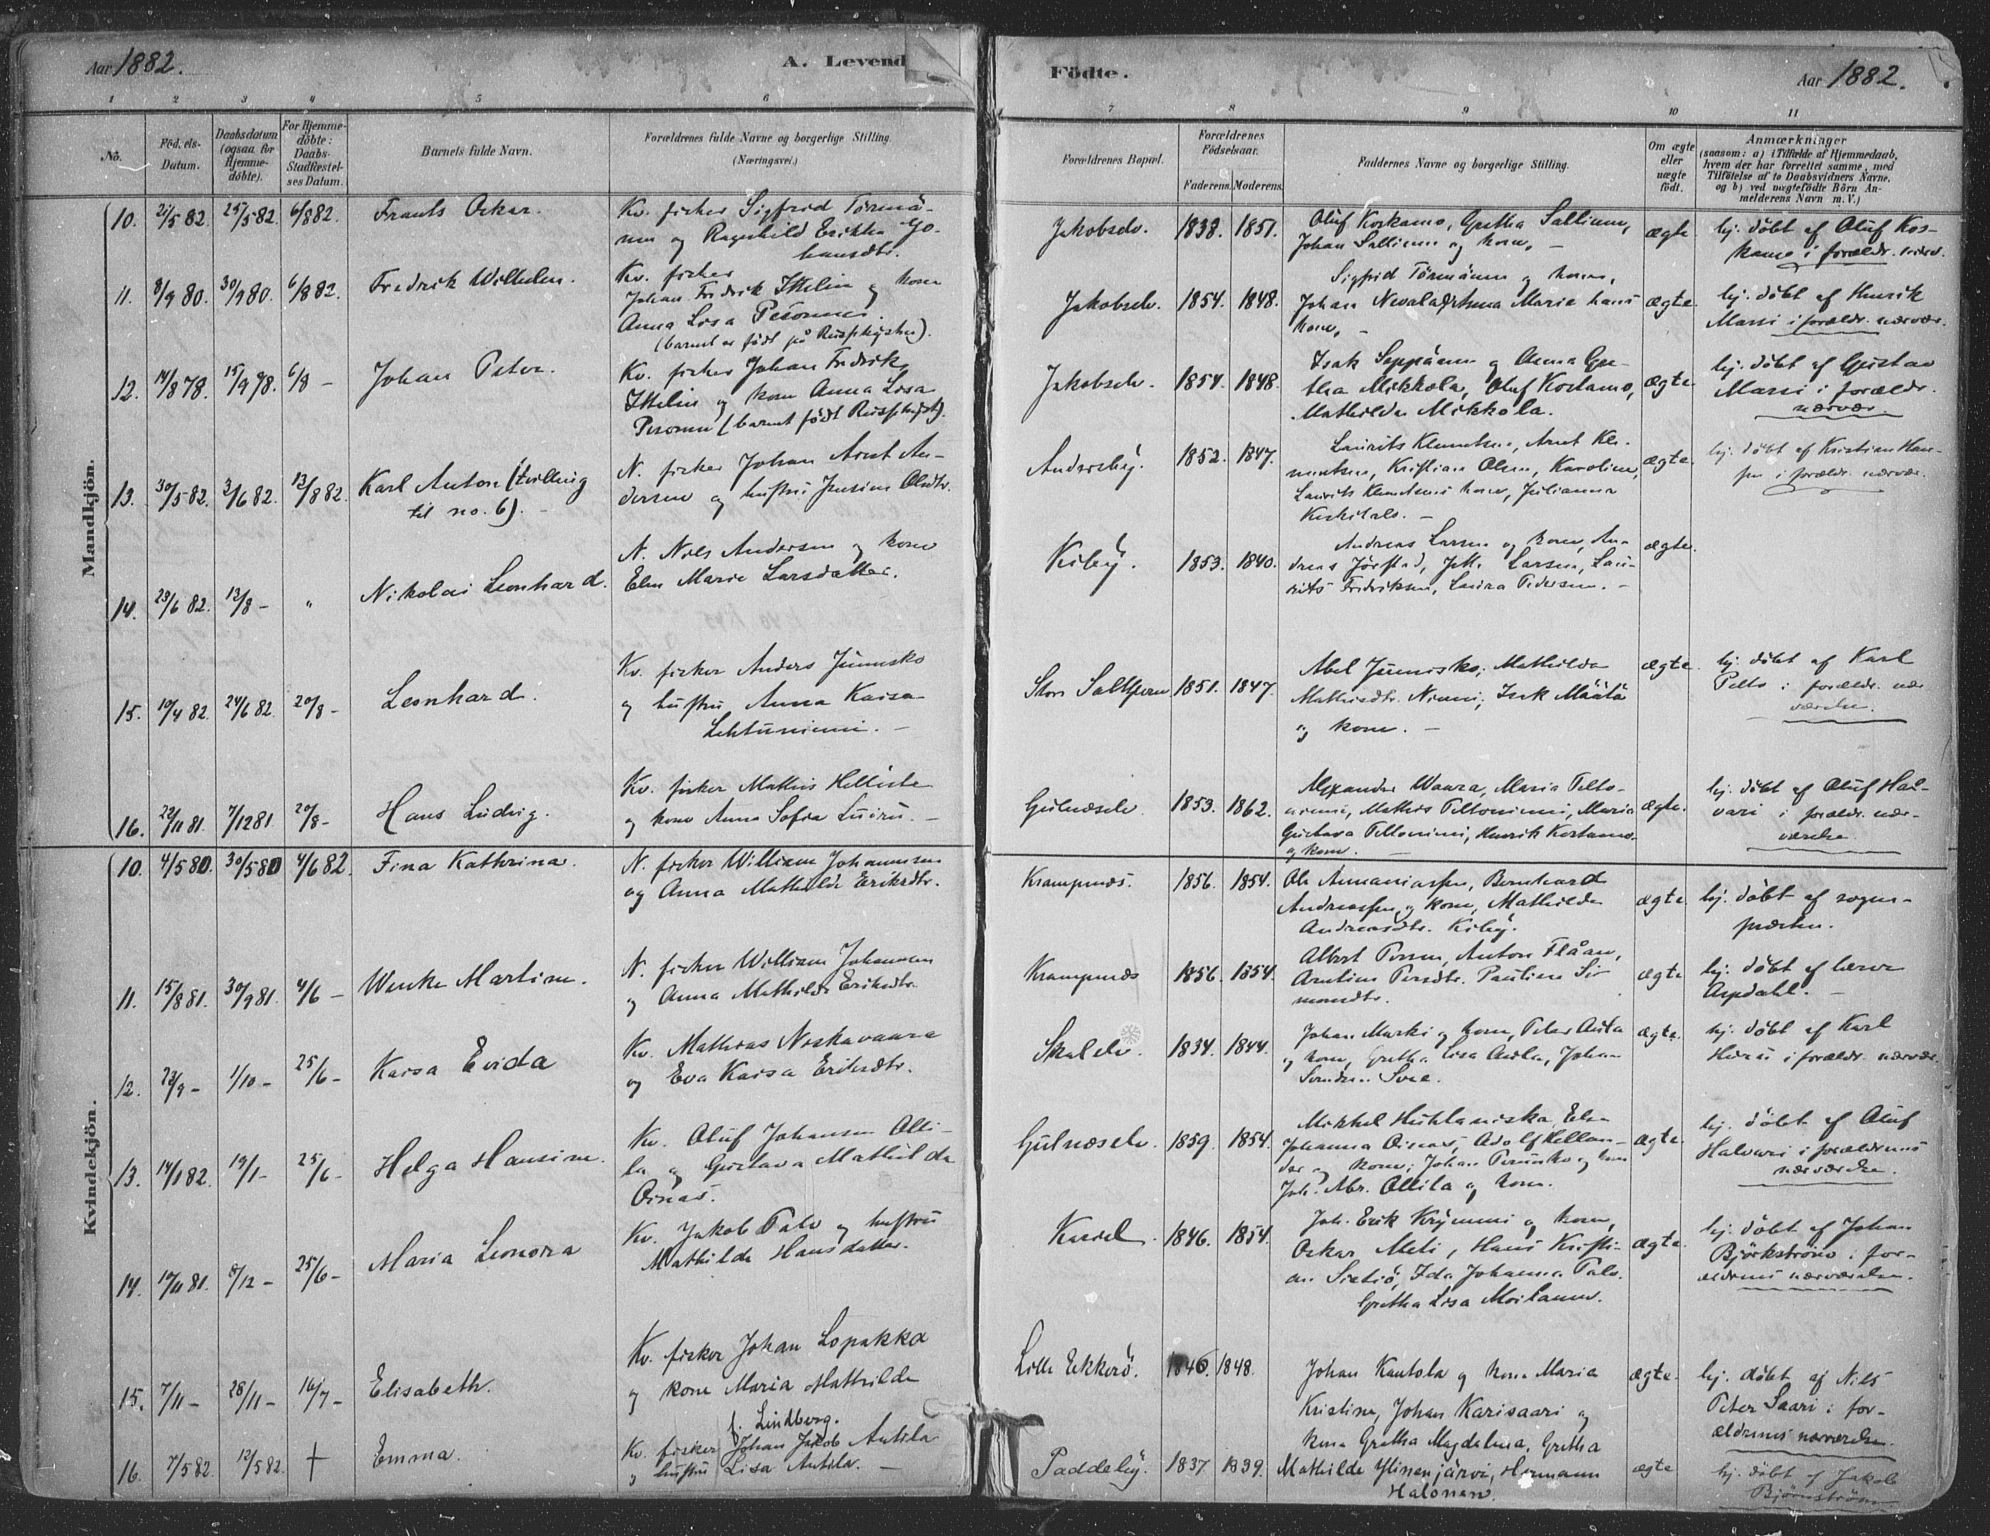 Aar 1882.
A. Levend
Födte.
Aar 1882.
1 2 3 4 5 6 7 8 9 10 11
No.
Fød.els-Datum.
Daabsdatum (ogsaa for Hjemme-døbte).
For Hjemme-døbte: Daabs-Stadfæstel-ses Datum.
Barnets fulde Navn.
Forældrenes fulde Navne og borgerlige Stilling.
(Næringsvei.)
Forældrenes Bopæl.
Forældrenes Födselsaar.
Faderens. Moderens.
Faddernes Navne og borgerlige Stilling.
Om ægte eller uægte født.
Anmærkninger
(saasom: a) i Tilfælde af Hjemmedaab,
hvem der har forrettet samme, med
Tilföielse af to Daabsvidners Navne,
og b) ved uægtefödte Börn An-
melderens Navn m. V.)
Mandkjön.
10. 21/5 82. 25/5 82. 6/8 82. Frants Oskar.
Kv. fisker Sigfrid Törmä-
nen og Ragnhild Erikka Jo-
hansdtr.
Jakobselv. 1838. 1851.
Oluf Koskamo, Gretha Sallinen,
Johan Sallinen og kone, –
ægte
hj. døbt af Oluf Kos-
kamo i forældr. nærv.
11. 8/9 80. 30/9 80. 6/8 82. Fredrik Wilhelm.
Kv. fisker
Johan Fredrik Ikelin og kone
Anna Lisa Pesonen.
(barnet er født på Russekysten).
Jakobselv. 1854. 1848.
Sigfrid Törmänen og kone,
Johan Nevala, Anna Maria hans
kone, –
ægte
hj. døbt af Henrik
Marsi i forældr. nærvær.
12. 14/8 78. 15/9 78. 6/8 – Johan Peter.
Kv. fisker Johan Fredrik
Ikelin og kone Anna Lisa
Pesonen (barnet født Russekyst).
Jakobselv. 1854. 1848.
Isak Seppänen og Anna Gre-
tha Mikkola, Oluf Kostamo,
Mathilda Mikkola.
ægte
hj. døbt af Gustav
Marsi i forældr.
nærvær.
13. 30/5 82. 3/6 82. 13/8 82. Karl Anton (tvilling
til no. 6). –
N. fisker Johan Arnt An-
dersen og hustru Jensine Olsdtr.
Andersby. 1852. 1847.
Laurits Klemetsen, Arnt Kle-
metsen, Kristian Olsen, Karoline,
Laurits Klemetsens kone, Julianna
–
ægte.
hj. døbt af Kristian Han-
sen i forældr. nærvær.
14. 23/6 82. 13/8 – " Nikolai Leonhard.
N. Nils Andersen og kone
Elen Marie Larsdatter.
Kiby. 1853. 1840.
Andreas Larsen og kone, An-
dreas Jørstad, Larsen, Lau-
rits Fredriksen, Laura Pedersen. –
ægte.
15. 10/4 82. 24/6 82. 20/8 – Leonhard.
Kv. fisker Anders Junnsko
og hustru Anna Kaisa
Lehtuniemi. –
Store Saltjern 1851. 1847.
Abel Junnisko, Mathilda
Mathisdtr. Niemi, Isak Määtä
og kone. –
ægte.
hj. døbt af Karl
Pelto i forældr. nær
værelse.
16. 22/11 81. 7/12 81. 20/8 – Hans Ludvig.
Kv. fisker Mathis
og kone Anna Sofia Luiru. –
Gulnæselv. 1853. 1862.
Alexander Waara, Maria Pelto-
niemi, Mathis Peltoniemi, Maria
Gustava Peltoniemi, Henrik Kostamo
og kone. –
ægte.
hj. døbt af Oluf Hal-
vari i forældr. nær-
værelse.
Kvindekjön.
10. 4/5 80. 30/5 80 4/6 82. Fina Kathrina.
N. fisker William Johannesen
og Anna Mathilde Eriksdtr.
Krampenæs. 1856. 1854.
Ole Annaniassen, Bernhard
Andreassen og kone, Mathilde
Andreasdtr. Kiby.
ægte.
hj. døbt af sogne-
præsten.
11. 15/8 81. 30/9 81. 4/6 – Wenke Martine.
N. fisker William Johannesen
og Anna Mathilde Eriksdtr.
Krampenæs 1856. 1854.
Albert Persen, Anton Flåan,
Arntine Persdtr. Pauline Si
monsdtr.
ægte
hj. døbt af lærer
Aspdahl. –
12. 23/9 – 1/10 – 25/6 – Kaisa Evida
Kv. Mathias Niskavaara
og Eva Kaisa Eriksdtr.
Skalelv. 1834. 1844.
Johan Marski og kone, Peter Autia
og kone, Gretha Lisa Aula, Johan
ægte.
hj. døbt af Karl
i forældr. nærvær.
13. 14/1 82. 19/1 – 25/6 – Helga Hansine.
Kv. Oluf Johansen Olli-
la og Gustava Mathilda
Oinas.
Gulnæselv. 1859. 1854.
Mikkel Huhtaniska, Elen
Johanna Oinas, Adolf Hellan-
der og kone, Johan Perunko og kone
Joh. Abr. Ollila og kone.
ægte
hj. døbt af Oluf
Halvari i forældrenes
nærværelse.
14. 10/11 81. 8/12 – 25/6 – Maria Leonora
Kv. Jakob Palo og hustru
Mathilda Hansdatter.
1846. 1854.
Joh. Erik Krymmi og kone,
Oskar Meli, Hans Kristi-
an Sieliö, Ida Johanna Palo.
Gretha Lisa Moilanen.
ægte.
hj. døbt af Johan
Björkström i for-
ældrenes nærværelse.
15. 7/11 – 28/11 – 16/7 – Elisabeth.
Kv. fisker Johan Lopakka
og kone Maria Mathilde
f. Lindberg.
Lille Ekkerö. 1846. 1848.
Johan Kantola og kone Maria
Kristine, Johan Karisaari og
kone Gretha Magdalena, Gretha
ægte.
hj. døbt af Nils
Peter Saari i for-
ældrenes nærværelse.
16. 7/5 82. 12/5 82. † Emma.
Kv. fisker Johan Jakob Antila
og hustru Lisa Antila. –
Paddeby. 1837. 1839.
Mathilde Ylinenjärvi, Hermann
Halonen.
ægte
hj. døbt af Jakob
Björnström